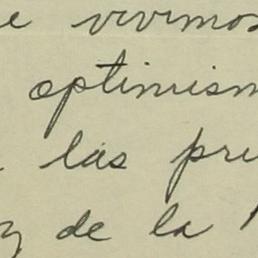 e vivimos
optimism
las pri
z de la